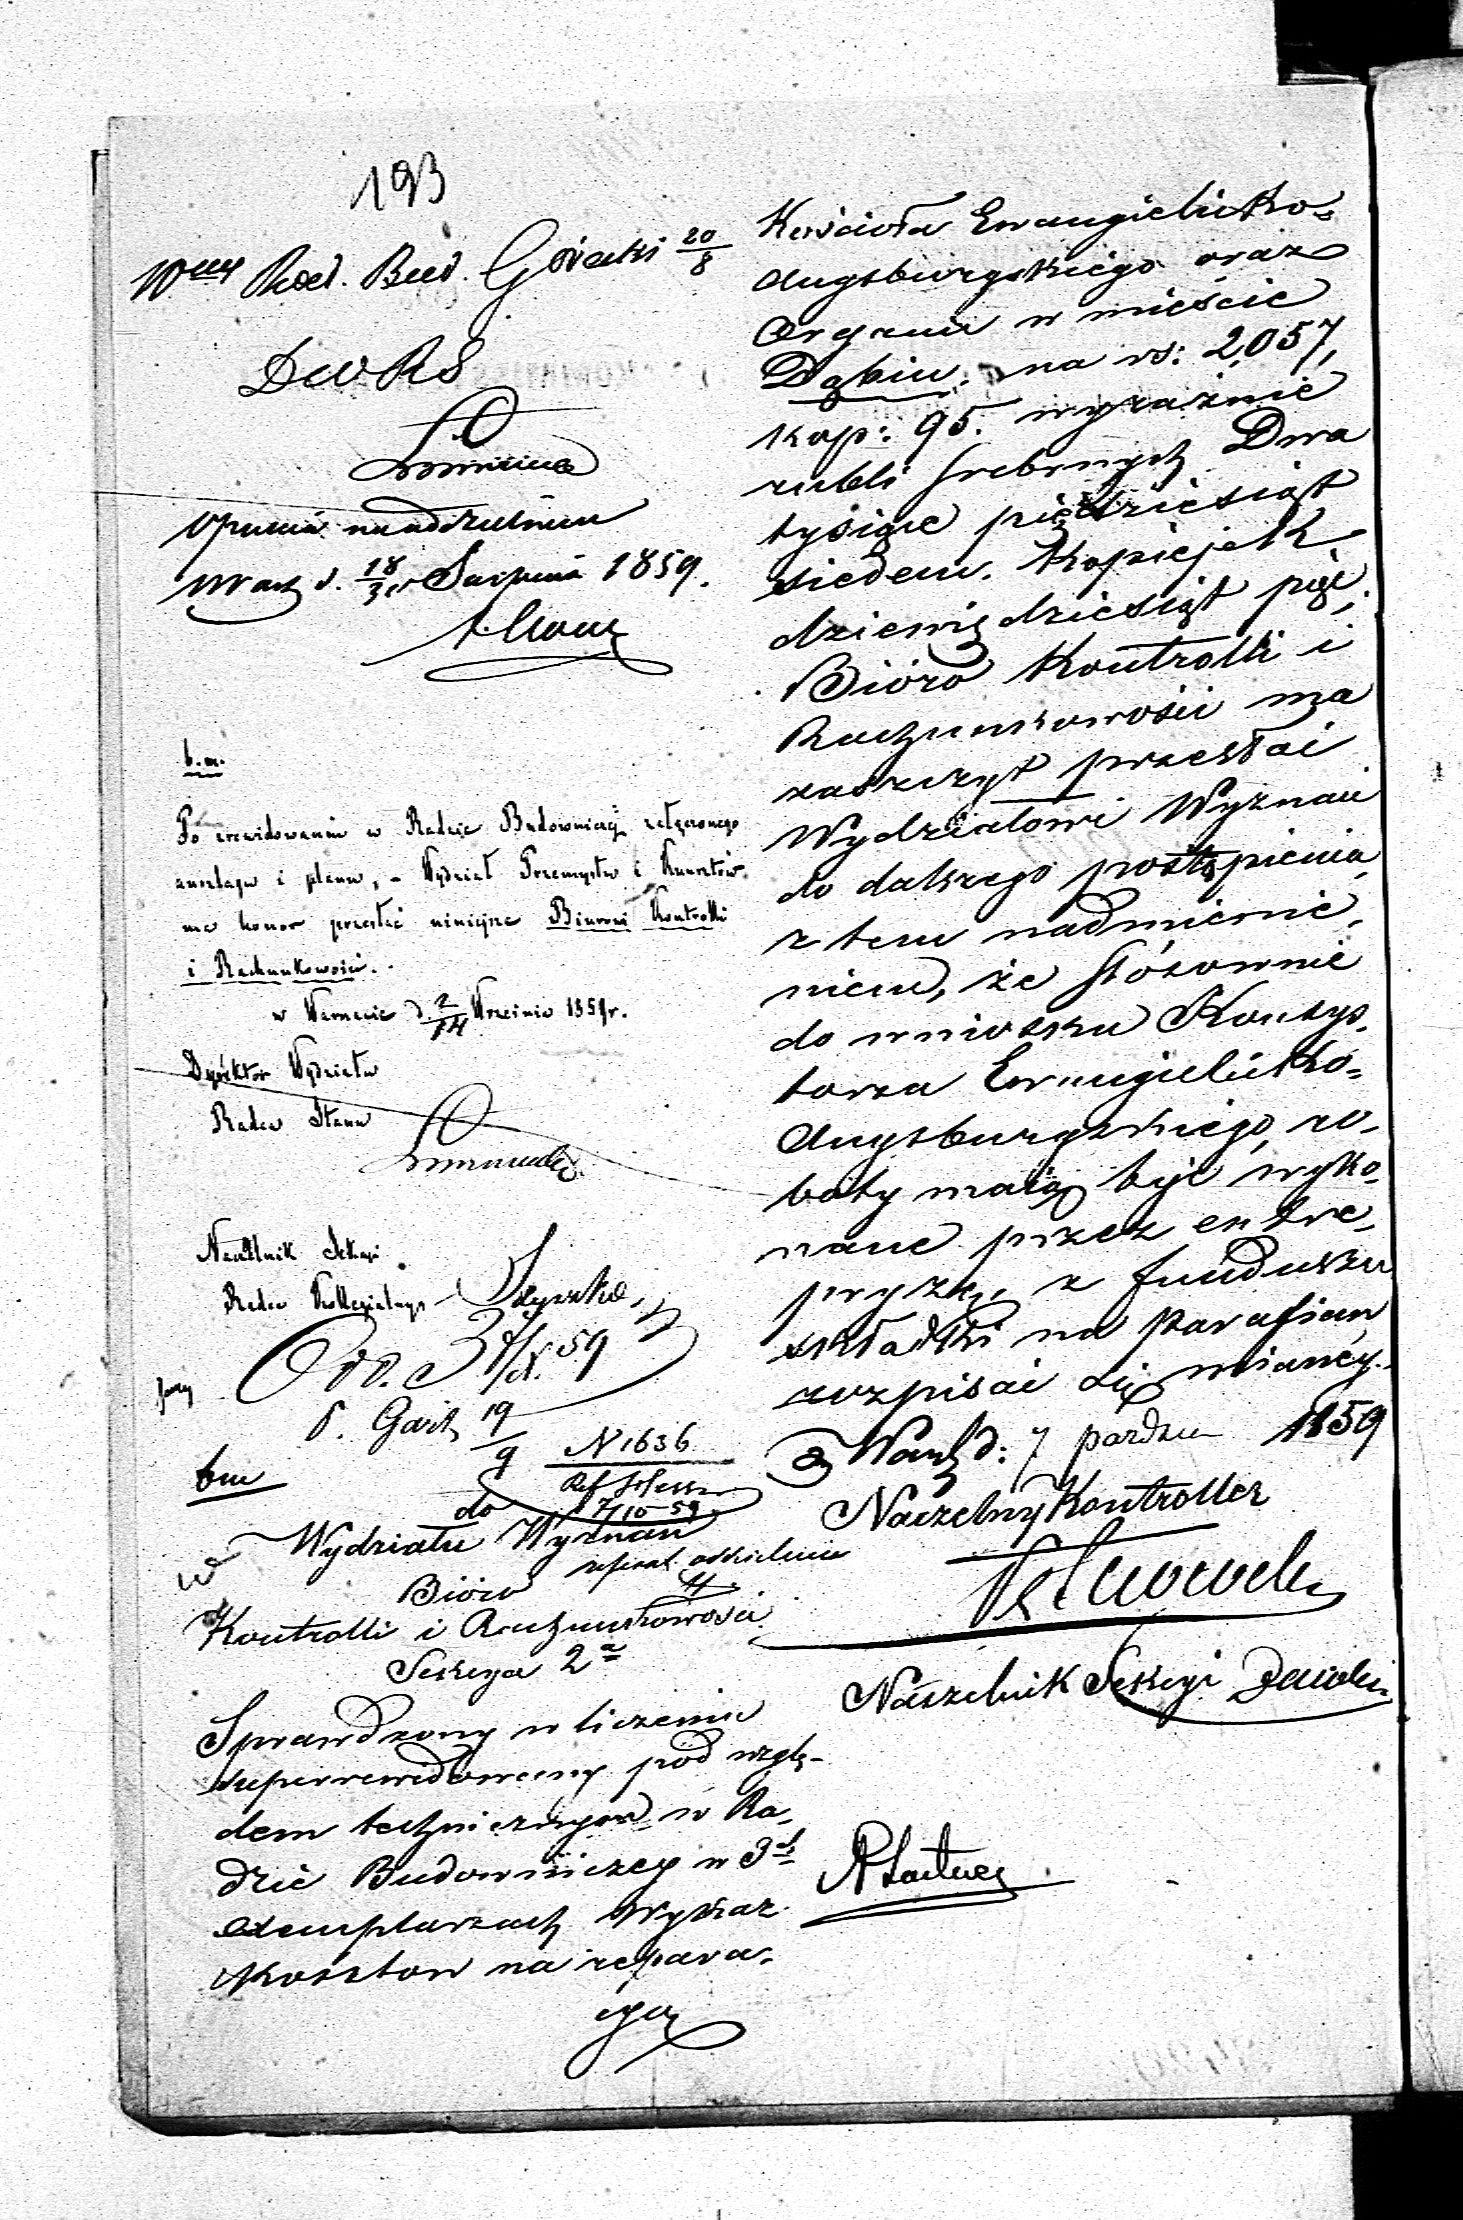 193
Rad. Bud. Górecki 20/8
DWRS
Opinia na oddzielnem
Warsz d. 18/30 Sierpnia 1859.
b. m.
Po zrewidowaniu w Radzie Budowniczej załączonego
anszlagu i planu, – Wydział Przemysłu i Kunsztów
ma honor przesłać niniejsze Biurowi Kontrolli
i Rachunkowości.
w Warszawie d. 2/14 Września 1859 r.
Dyrektor Wydziału
Radca Stanu
Naczelnik Sekcyi
Radca Kollegialny
59
19/9
N 1636
bm
do 7/10 59
Wydziału Wyznań
Bióro
Kontrolli i Rachunkowości
Sekcya 2a
Sprawdzony w liczeniu
superrewidowany pod wzglę-
dem technicznym w Ra-
dzie Budowniczey w 3ch
exemplarzach Wykaz
Kosztow na repara-
cyą
Kościoła Ewangielicko-
Augsburgskiego oraz
Organu w mieście
Dąbiu, na rs: 2,057,
kop: 95. wyraźnie
rubli srebrnych Dwa
tysiące pięćdziesiąt
siedem. Kopiejek
dziewięćdziesiąt pięć;
Bióro Kontrolli i
Rachunkowości ma
zaszczyt przesłać
Wydziałowi Wyznań
do dalszego postąpienia
z tem nadmienie-
niem, że stósownie
do wniosku Konsys-
torza Ewangielicko-
Augsburgskiego, ro-
boty maią być wyko-
nane przez entre-
pryzę, z funduszu
składki na parafian
rozpisać się mianéy.
w Warsz d: 7 pazdzier 1859
Naczelny Kontroller
Naczelnik Sekcyi